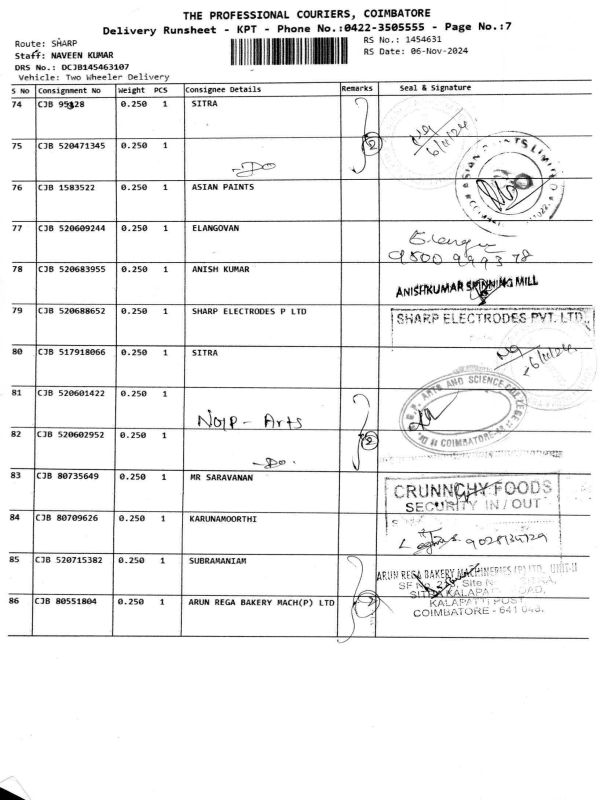 THE PROFESSIONAL COURIERS, COIMBATORE
Delivery Runsheet - KPT - Phone No.:0422-3505555 - Page No.:7
Route: SHARP
RS No.: 1454631
Staff: NAVEEN KUMAR
RS Date: 06-Nov-2024
DRS No.: DCJB145463107
Vehicle: Two Wheeler Delivery
S No Consignment No Weight PCS Consignee Details Remarks Seal & Signature
74 CJB 0.250 1 SITRA
6/11/24
75 CJB 520471345 0.250 1 -Do 2
76 CJB 1583522 0.250 1 ASIAN PAINTS
ASIAN PAINTS LIMITED
77 CJB 520609244 0.250 1 ELANGOVAN
Elango
9500 999378
78 CJB 520683955 0.250 1 ANISH KUMAR
ANISHKUMAR SPINNING MILL
79 CJB 520688652 0.250 1 SHARP ELECTRODES P LTD
SHARP ELECTRODES PVT. LTD.,
80 CJB 517918066 0.250 1 SITRA
6/11/24
81 CJB 520601422 0.250 1 - Arts
ARTS AND SCIENCE COLLEGE
COIMBATORE
82 CJB 520602952 0.250 1 -Do. 2
83 CJB 80735649 0.250 1 MR SARAVANAN
CRUNNCHY FOODS
SECURITY IN / OUT
84 CJB 80709626 0.250 1 KARUNAMOORTHI
85 CJB 520715382 0.250 1 SUBRAMANIAM
ARUN REGA BAKERY MACHINERIES (P) LTD., UNIT-II
SF No. Site
SITRA KALAPATTI ROAD,
86 CJB 80551804 0.250 1 ARUN REGA BAKERY MACH(P) LTD 2
KALAPATTI POST
COIMBATORE - 641 048.